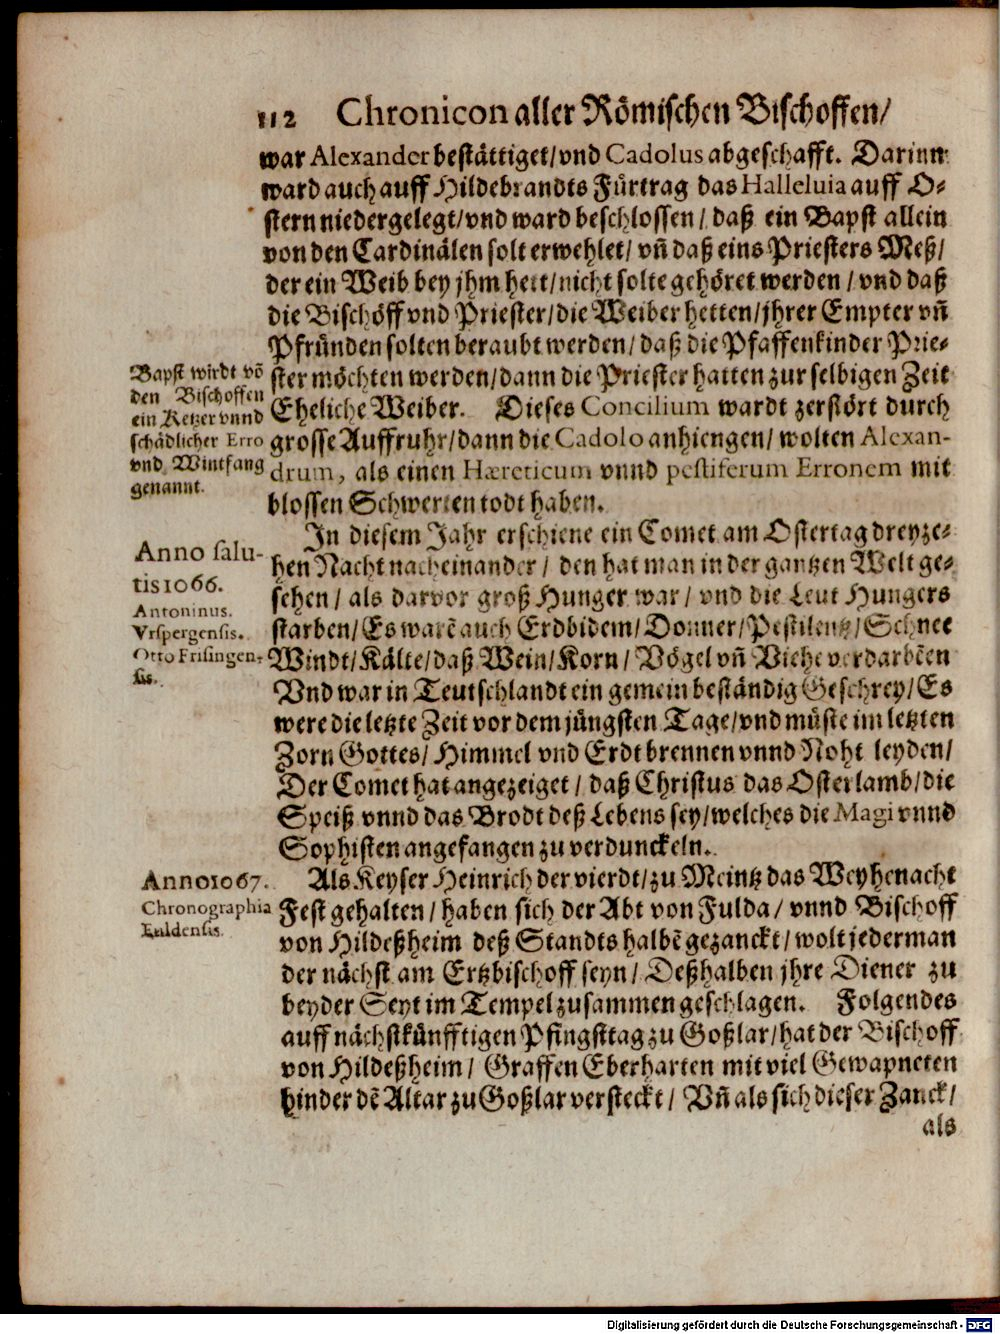 112 Chronicon aller Römischen Bischoffen/
war Alexander bestättiget/vnd Cadolus abgeschafft. Darinn
ward auch auff Hildebrandts Fürtrag das Halleluia auff O-
stern niedergelegt/vnd ward beschlossen/ daß ein Bapst allein
von den Cardinälen solt erwehlet/ vñ daß eins Priesters Meß/
der ein Weib bey jhm hett/nicht solte gehöret werden/ vnd daß
die Bischöff vnd Priester/die Weiber hetten/jhrer Empter vñ
Pfründen solten beraubt werden/ daß die Pfaffenkinder Prie-
ster möchten werden/dann die Priester hatten zur selbigen Zeit
Eheliche Weiber. Dieses Concilium wardt zerstört durch
grosse Auffruhr/dann die Cadolo anhiengen/ wolten Alexan-
drum, als einen Hæreticum vnnd pestiferum Erronem mit
blossen Schwerten todt haben.
Bapst wirdt võ
den Bischoffen
ein Ketzer vnnd
schädlicher Erro
vnd Wintfang
genannt.
In diesem Jahr erschiene ein Comet am Ostertag dreyze-
hen Nacht nacheinander/ den hat man in der gantzen Welt ge-
sehen/ als darvor groß Hunger war/ vnd die Leut Hungers
starben/Es warẽ auch Erdbidem/Donner/Pestilentz/Schnee
Windt/Kälte/daß Wein/Korn/ Vögel vñ Viehe verdarbẽen
Vnd war in Teutschlandt ein gemein beständig Geschrey/Es
were die letzte Zeit vor dem jüngsten Tage/vnd müste im letzten
Zorn Gottes/ Himmel vnd Erdt brennen vnnd Noht leyden/
Der Comet hat angezeiget/ daß Christus das Osterlamb/die
Speiß vnnd das Brodt deß Lebens sey/welches die Magi vnnd
Sophisten angefangen zu verdunckeln.
Anno salu-
tis 1066.
Antoninus.
Vrspergensis.
Otto Frisingen-
sis.
Als Keyser Heinrich der vierdt/zu Meintz das Weyhenacht
Fest gehalten/ haben sich der Abt von Fulda/ vnnd Bischoff
von Hildeßheim deß Standts halbẽ gezanckt/wolt jederman
der nächst am Ertzbischoff seyn/ Deßhalben jhre Diener zu
beyder Seyt im Tempel zusammen geschlagen. Folgendes
auff nächstkünfftigen Pfingsttag zu Goßlar/hat der Bischoff
von Hildeßheim/ Graffen Eberharten mit viel Gewapneten
hinder dẽ Altar zu Goßlar versteckt/ Vñ als sich dieser Zanck/
als
Anno 1067.
Chronographia
Fuldensis.
Digitalisierung gefördert durch die Deutsche Forschungsgemeinschaft - DFG